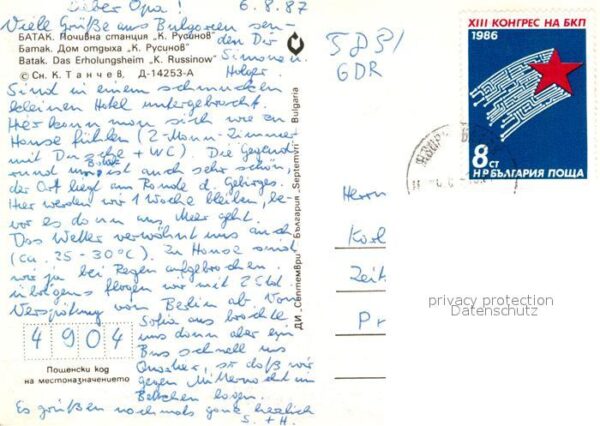 Lieber Opa! 6.8.87
Viele Grüße aus Bulgarien sen-
БАТАК. Почивна станция „К. Русинов"
den Dir
Батак. Дом отдыха „К. Русинов"
Simone u.
Batak. Das Erholungsheim „K. Russinow"
Holger.
© Сн. К. Танчев, Д-14253-А
Sind in einem schmucken
kleinen Hotel untergebracht.
Hier kann man sich wie zu
Hause fühlen (2-Mann-Zimmer
mit Dusche + WC). Die Gegend
Batak
rund um ist auch sehr schön,
der Ort liegt am Rande d. Gebirges.
Hier werden wir 1 Woche bleiben, be-
vor es dann ans Meer geht.
Das Wetter verwöhnt uns auch
(ca. 25-30°C). Zu Hause sind
wir ja bei Regen aufgebrochen.
übrigens flogen wir mit 2 Std.
Verspätung von Berlin ab. Von
Sofia aus brachte
uns dann aber ein
Bus schnell ins
Quartier, so daß wir
gegen Mitternacht im
Bettchen lagen.
Es grüßen nochmals ganz herzlich
S. + H.
4904
Пощенски код
на местоназначението
ДИ „Септември" България „Septemvri" Bulgaria
GDR
XIII КОНГРЕС НА БКП
1986
8 СТ
НР БЪЛГАРИЯ ПОЩА
Herrn
Karl
Zeit
privacy protection
Datenschutz